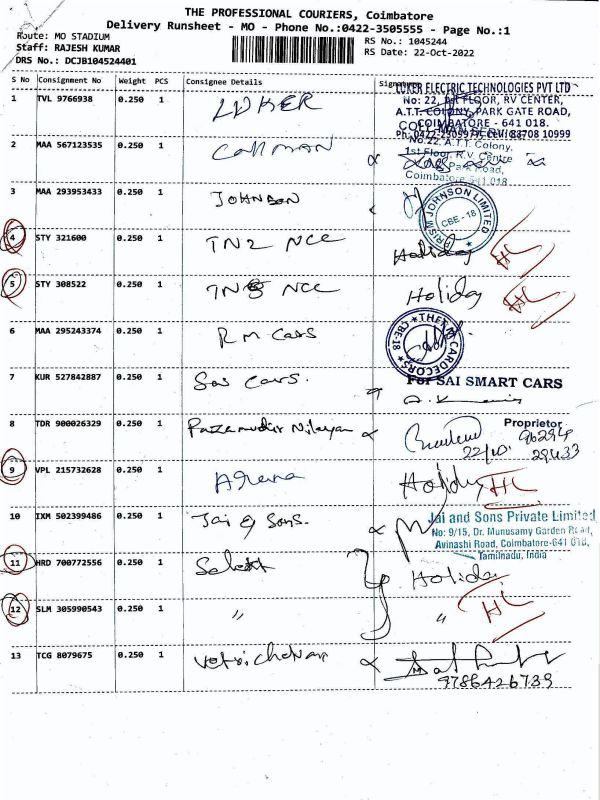 THE PROFESSIONAL COURIERS, Coimbatore
Delivery Runsheet - MO - Phone No.:0422-3505555 - Page No.:1
Route: MO STADIUM
Staff: RAJESH KUMAR
DRS No.: DCJB104524401
RS No.: 1045244
RS Date: 22-Oct-2022
S No Consignment No Weight PCS Consignee Details Signature
1 TVL 9766938 0.250 1 LUKER
LUKER ELECTRIC TECHNOLOGIES PVT LTD
No: 22, 1st FLOOR, RV CENTRE,
A.T.T. COLONY, PARK GATE ROAD,
COIMBATORE - 641 018.
2 MAA 567123535 0.250 1 Collman
No.22, A.T.T. Colony,
1st Floor, R.V. Centre
Park Road,
Coimbatore-641 018
3 MAA 293953433 0.250 1 Johnson
PRISM JOHNSON LIMITED
CBE - 18
4 STY 321600 0.250 1 TN2 NCC Holiday HL
5 STY 308522 0.250 1 NCC Holiday HL
6 MAA 295243374 0.250 1 R m Cars
CBE-18
7 KUR 527842887 0.250 1 Sai Cars.
For SAI SMART CARS
Proprietor
8 TDR 900026329 0.250 1 Pazamudir Nilayam
22/10
96294
29433
9 VPL 215732628 0.250 1 Arena Holiday HL
10 IXM 502399486 0.250 1 Jai & Sons.
Jai and Sons Private Limited
No: 9/15, Dr. Munusamy Garden Road,
Avinashi Road, Coimbatore-641 018,
Tamilnadu, India
11 HRD 700772556 0.250 1 Holiday
12 SLM 305990543 0.250 1 " " HL
13 TCG 8079675 0.250 1
9786426739